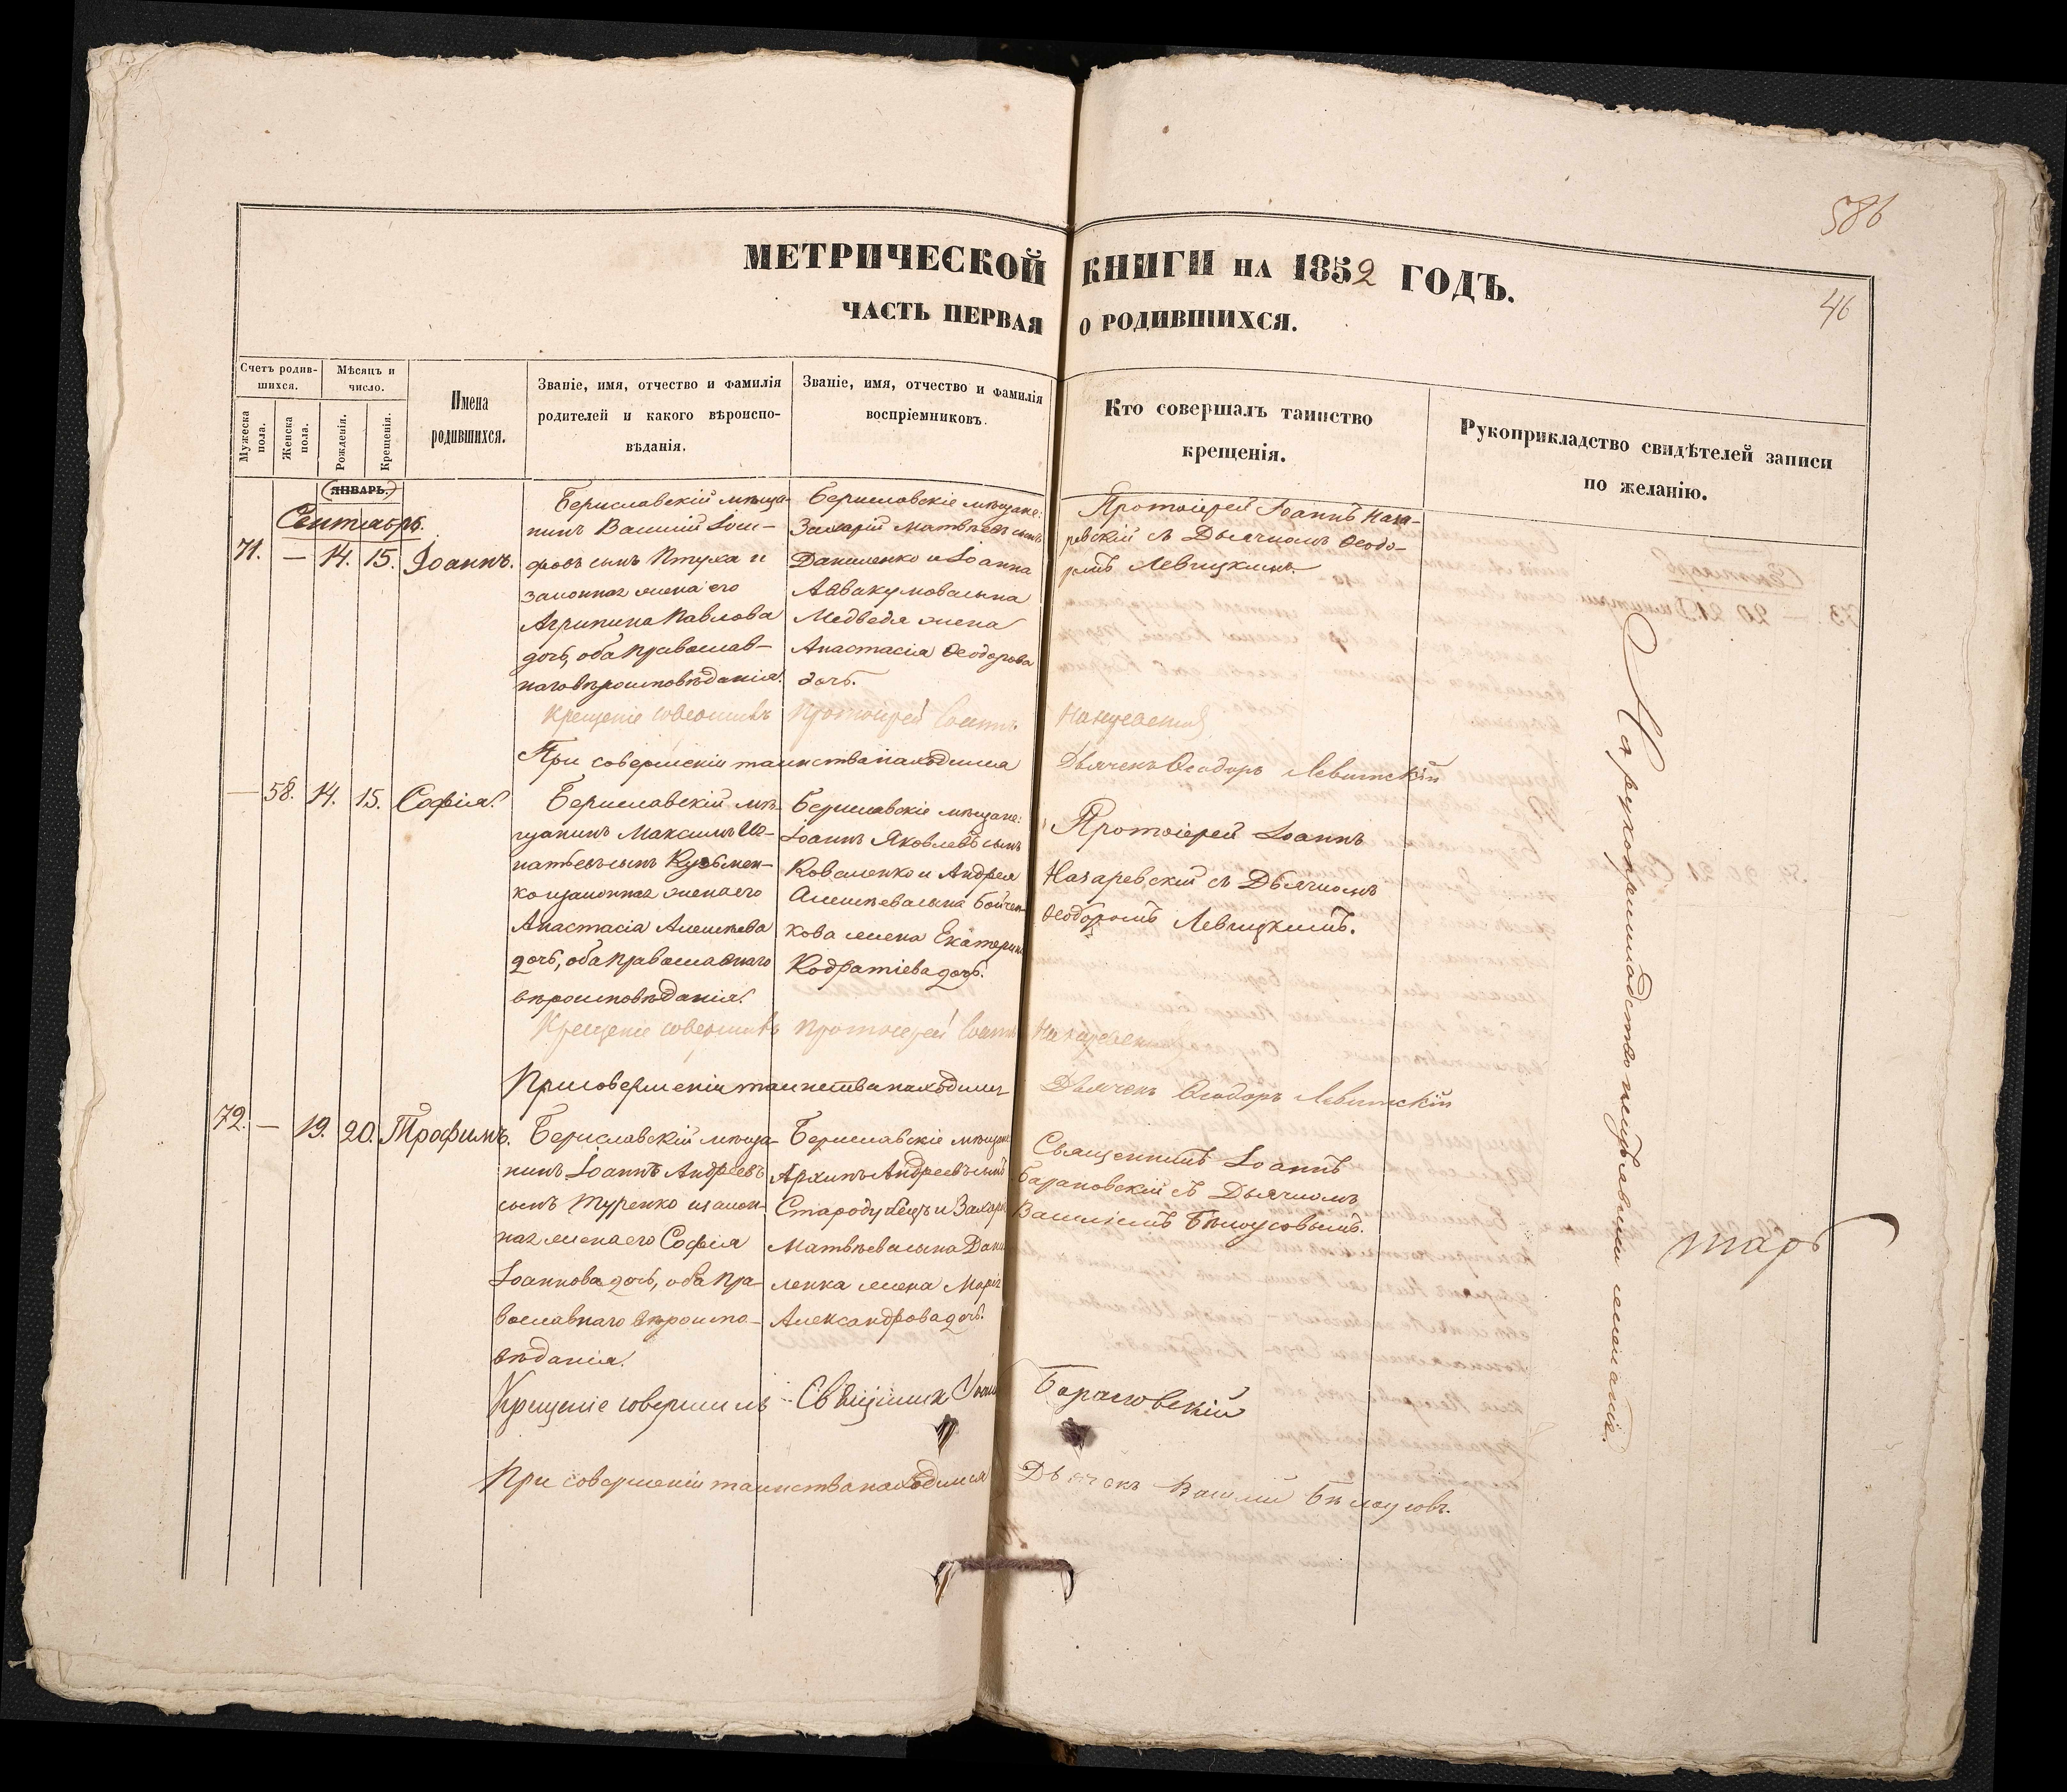 586
46
МЕТРИЧЕСКОЙ КНИГИ НА 1852 ГОДЪ.
ЧАСТЬ ПЕРВАЯ О РОДИВШИХСЯ.
Счетъ родив-
шихся.
Мѣсяцъ и
число.
Мужеска
пола.
Женска
пола.
Рожденія.
Крещенія.
Имена
родившихся.
Званіе, имя, отчество и фамилія
родителей и какого вѣроиспо-
вѣданія.
Званіе, имя, отчество и фамилія
воспріемниковъ.
Кто совершалъ таинство
крещенія.
Рукоприкладство свидѣтелей записи
по желанію.
ЯНВАРЬ.
Сентябрь.
71. — 14. 15. Іоаннъ.
Бериславскій мѣща-
нинъ Василій Іоси-
фовъ сынъ Птуха и
законная жена его
Агрипина Павлова
дочь, оба православ-
наго вѣроисповѣданія.
Бериславскіе мѣщане:
Захарій Матвѣевъ сынъ
Даниленко и Іоанна
Аввакумова сына
Медведя жена
Анастасія Ѳеодорова
дочь.
Протоіерей Іоаннъ Наза-
ревскій съ Дьячкомъ Ѳеодо-
ромъ Левицкимъ.
Крещеніе совершилъ Протоіерей Іоаннъ Назаревскій
При совершеніи таинства находился Дьячекъ Ѳеодоръ Левитскій
— 58. 14. 15. Софія.
Бериславскій мѣ-
щанинъ Максимъ Иг-
натьевъ сынъ Кузьмен-
ко и законная жена его
Анастасія Алексѣева
дочь, оба православнаго
вѣроисповѣданія.
Бериславскіе мѣщане:
Іоаннъ Яковлевъ сынъ
Коваленко и Андрея
Алексѣева сына Бойчен-
кова жена Екатерина
Кодратіева дочь.
Протоіерей Іоаннъ
Назаревскій съ Дьячкомъ
Ѳеодоромъ Левицкимъ.
Крещеніе совершилъ Протоіерей Іоаннъ Назаревскій
При совершеніи таинства находился Дьячекъ Ѳеодоръ Левитскій
72. — 19. 20. Трофимъ.
Бериславскій мѣща-
нинъ Іоаннъ Андреевъ
сынъ Туренко и закон-
ная жена его Софія
Іоаннова дочь, оба пра-
вославнаго вѣроиспо-
вѣданія.
Бериславскіе мѣщане
Архипъ Андреевъ сынъ
Стародубецъ и Захарія
Матвѣева сына Дани
ленка жена Марія
Александрова дочь.
Священникъ Іоаннъ
Барановскій съ Дьячкомъ
Василіемъ Бѣлоусовымъ.
Крещеніе совершилъ Священникъ Іоаннъ Барановскій
При совершеніи таинства находился Дьячекъ Василій Бѣлоусовъ.
На рукоприкладство неизъявили желанія.
тарь